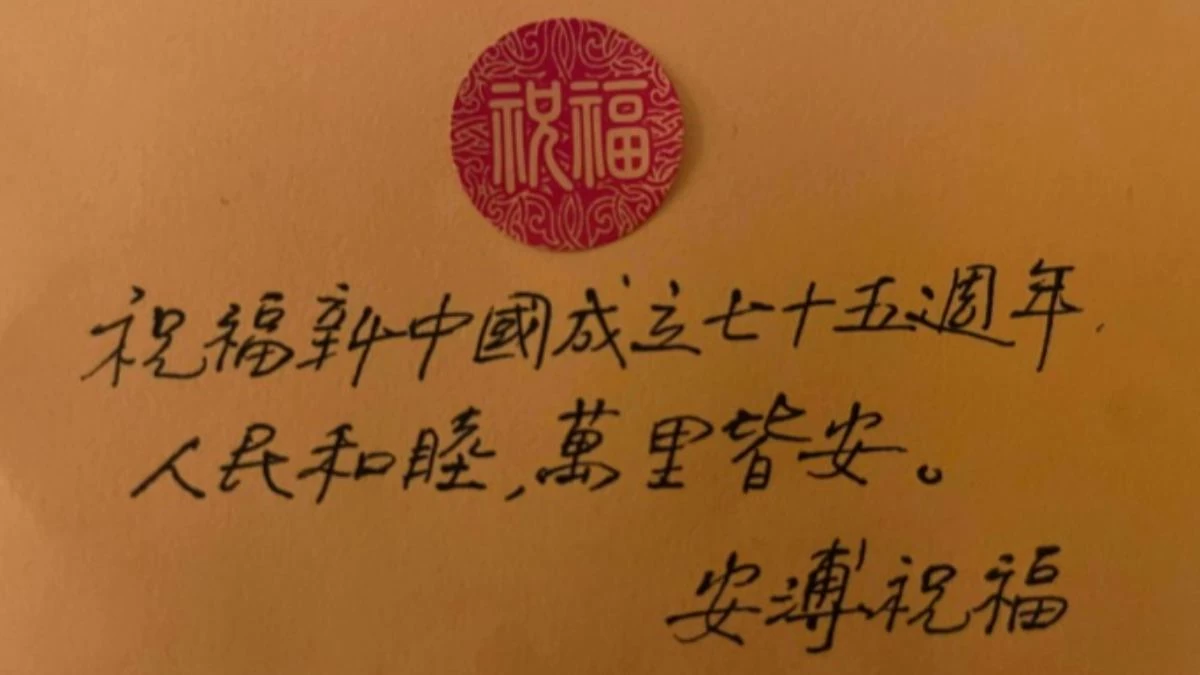 祝福
祝福新中國成立七十五週年
人民和睦,萬里皆安。
安溥祝福